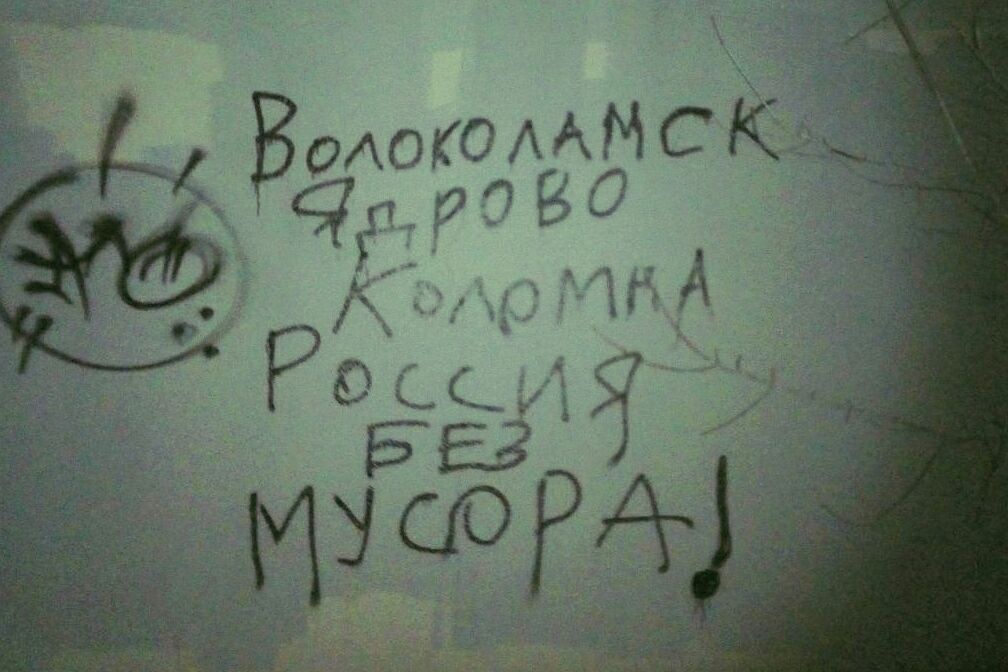 Волоколамск
Ядрово
Коломна
Россия
БЕЗ
МУСОРА!